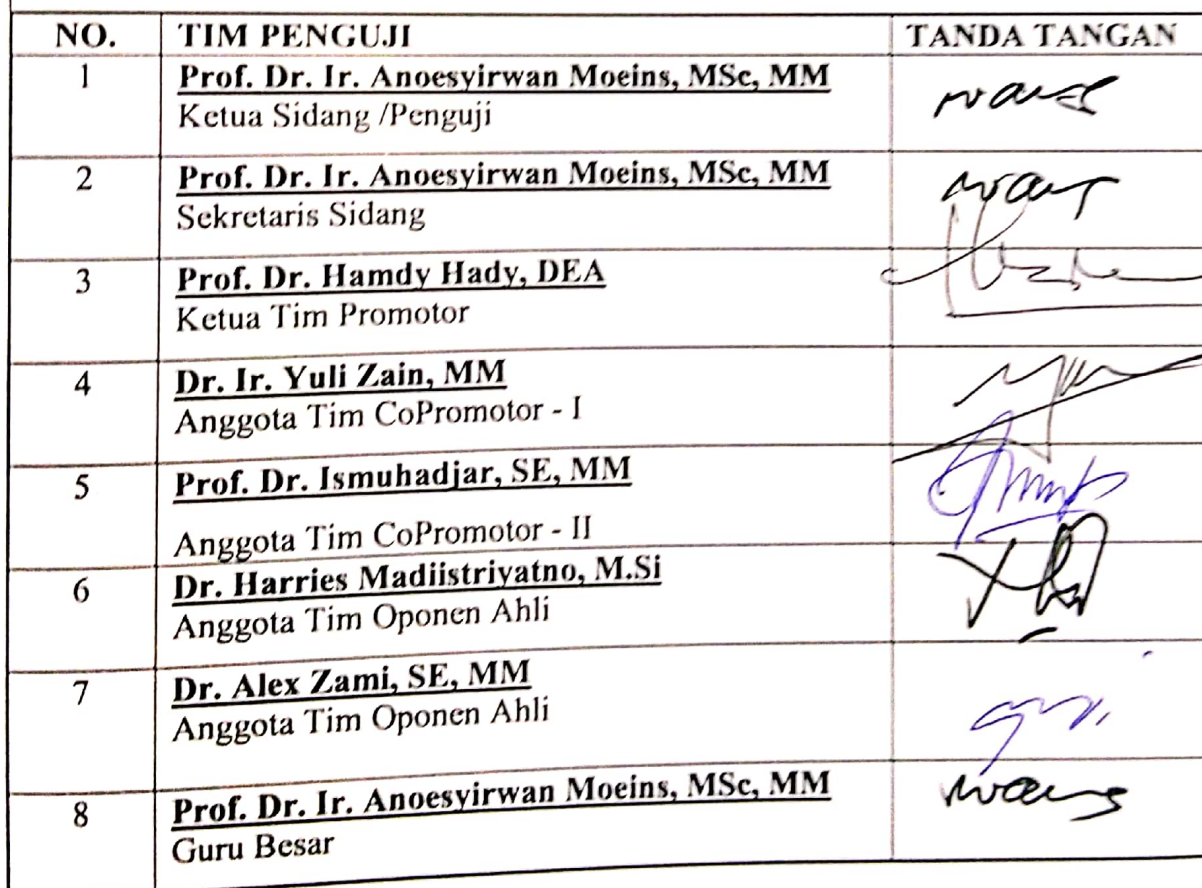 NO. TIM PENGUJI TANDA TANGAN
1 Prof. Dr. Ir. Anoesyirwan Moeins, MSc, MM
Ketua Sidang /Penguji
2 Prof. Dr. Ir. Anoesyirwan Moeins, MSc, MM
Sekretaris Sidang
3 Prof. Dr. Hamdy Hady, DEA
Ketua Tim Promotor
4 Dr. Ir. Yuli Zain, MM
Anggota Tim CoPromotor - I
5 Prof. Dr. Ismuhadjar, SE, MM
Anggota Tim CoPromotor - II
6 Dr. Harries Madiistriyatno, M.Si
Anggota Tim Oponen Ahli
7 Dr. Alex Zami, SE, MM
Anggota Tim Oponen Ahli
8 Prof. Dr. Ir. Anoesyirwan Moeins, MSc, MM
Guru Besar